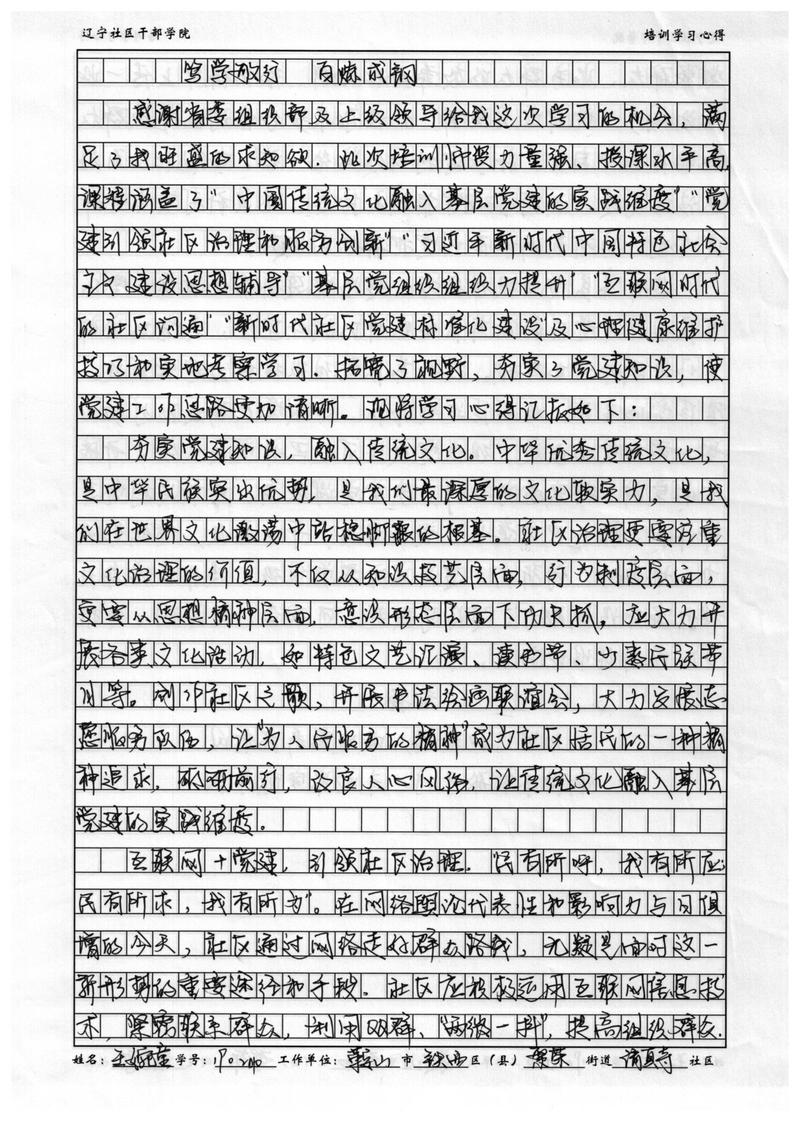 辽宁社区干部学院 培训学习心得
笃学敏行 百炼成钢
感谢省委组织部及上级领导给我这次学习的机会，满
足了我旺盛的求知欲，此次培训师资力量强、授课水平高，
课程涵盖了“中国传统文化融入基层党建的实践维度”“党
建引领社区治理和服务创新”“习近平新时代中国特色社会
主义建设思想辅导”“基层党组织组织力提升”“互联网时代
的社区沟通”“新时代社区党建标准化建设”及心理健康维护
技巧和实地考察学习，拓宽了视野，夯实了党建知识，使
党建工作思路更加清晰。现将学习心得汇报如下：
夯实党建知识，融入传统文化。中华优秀传统文化，
是中华民族突出优势，是我们最深厚的文化软实力，是我
们在世界文化激荡中站稳脚跟的根基。社区治理更要注重
文化治理的价值，不仅从知识技艺层面，行为制度层面，
更要从思想精神层面，意识形态层面下功夫抓，应大力开
展各类文化活动，如特色文艺汇演、读书节
等。创作社区之歌，开展书法绘画联谊会，大力发展志
愿服务队伍，让“为人民服务的精神”成为社区居民的一种精
神追求，砥砺前行，改良人心风俗，让传统文化融入基层
党建的实践维度。
互联网+党建，引领社区治理。“民有所呼，我有所应
民有所求，我有所为”。在网络舆论代表性和影响力与日俱
增的今天，社区通过网络走好群众路线，无疑是面对这一
新形势的重要途径和手段。社区应积极运用互联网信息技
术，紧密联系群众，利用QQ群、“两微一抖”，提高组织群众、
姓名： 学号： 工作单位：鞍山 市 铁西 区（县） 街道 社区